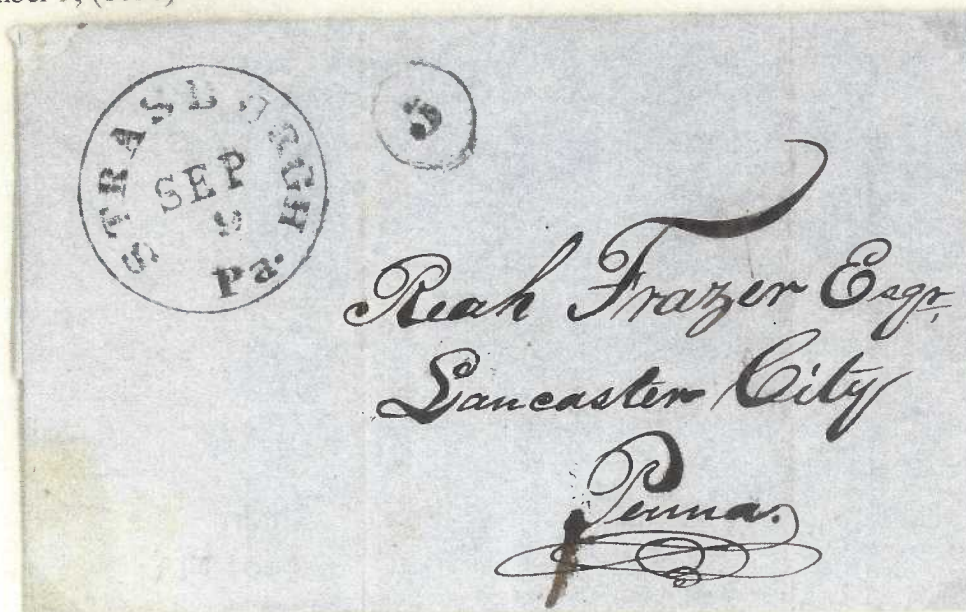 STRASBURGH
SEP
9
Pa.
5
Reah Frazer Esqr,
Lancaster City
Penna.